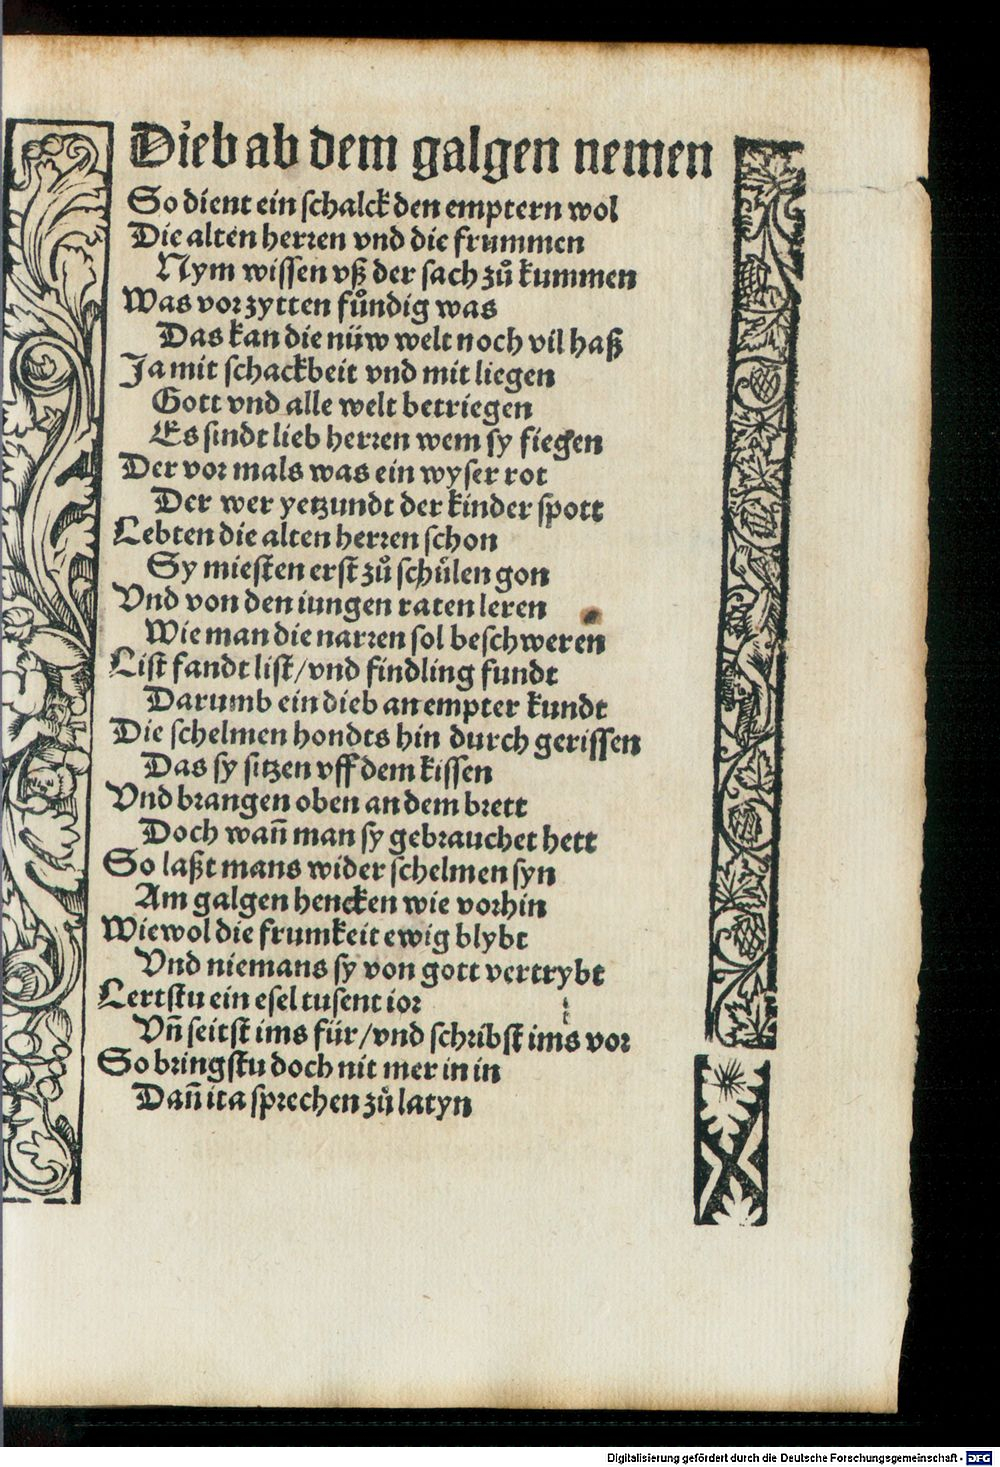 Dieb ab dem galgen nemen
So dient ein schalck den emptern wol
Die alten herren vnd die frummen
Nym wissen vß der sach zů kummen
Was vor zytten fůndig was
Das kan die nüw welt noch vil haß
Ja mit schackbeit vnd mit liegen
Gott vnd alle welt betriegen
Es sindt lieb herren wem sy fiegen
Der vor mals was ein wyser rot
Der wer yetzundt der kinder spott
Lebten die alten herren schon
Sy miesten erst zů schůlen gon
Vnd von den iungen raten leren
Wie man die narren sol beschweren
List fandt list/vnd findling fundt
Darumb ein dieb an empter kundt
Die schelmen hondts hin durch gerissen
Das sy sitzen vff dem kissen
Vnd brangen oben an dem brett
Doch wañ man sy gebrauchet hett
So laßt mans wider schelmen syn
Am galgen hencken wie vorhin
Wiewol die frumkeit ewig blybt
Vnd niemans sy von gott vertrybt
Lertstu ein esel tusent ior
Vñ seitst ims für/vnd schribst ims vor
So bringstu doch nit mer in in
Dañ ita sprechen zů latyn
Digitalisierung gefördert durch die Deutsche Forschungsgemeinschaft - DFG